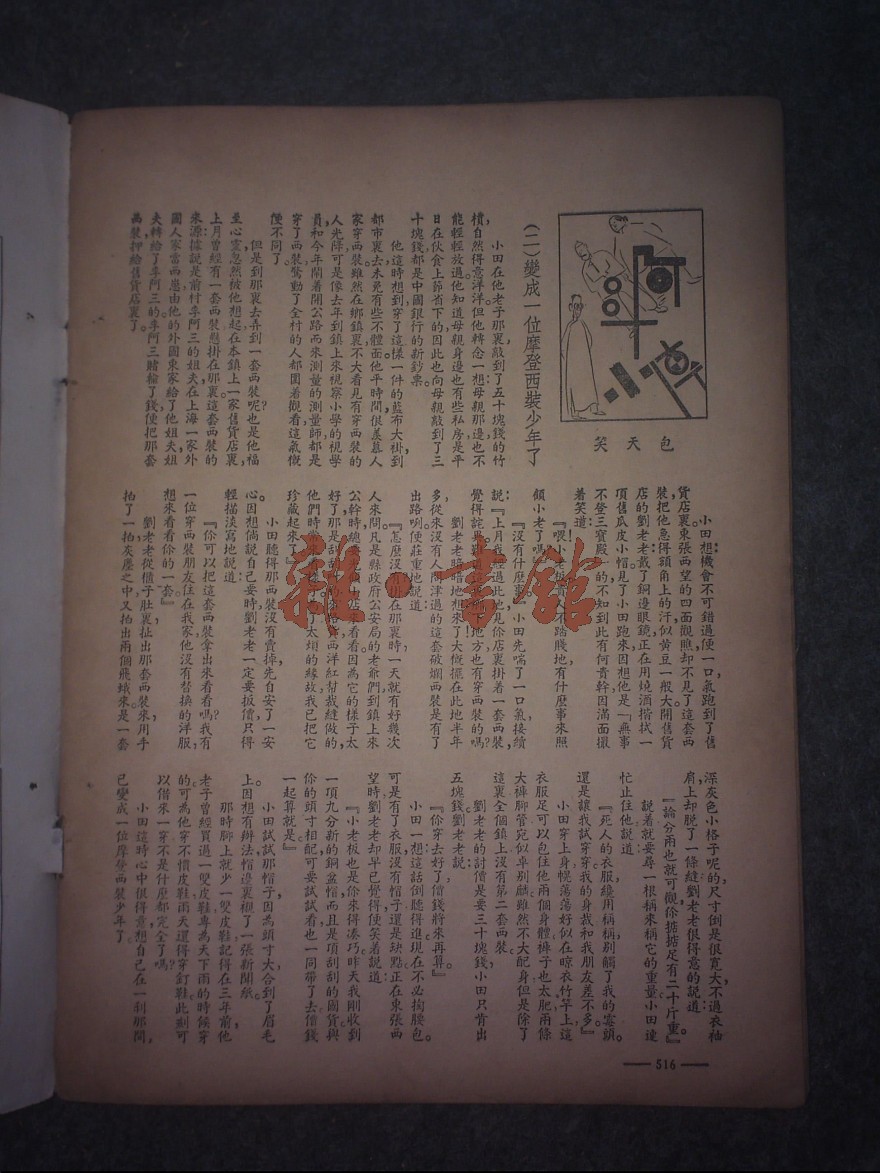 阿
田
小
傳
包天笑
(二)變成一位摩登西裝少年了
小田在他老子那裏敲到了五十塊錢的竹
槓自然得意洋洋。但他轉念一想：母親那邊也不
能輕輕放過。他知道母親身邊也有些私房是平
日在伙食上節省下的因此也向母親敲到了三
十塊錢都是中國銀行的新鈔票。
他這時想到穿了這樣一件的藍布大掛到
都市裏去未免有些不體面。他平時間很羨慕人
家穿西裝雖然在鄉鎮裏不大看見有穿西裝的
人光降可是像去年到鎮上來視察小學的視學
員和今年鬧着開公路而來測量的測量師都是
穿了西裝驚動了全村的人都圍着觀看這氣慨
便不同了。
但是到那裏去弄到一套西裝呢？也是他福
至心靈忽然被他想起在本鎮上一家售貨店裏
上月曾經有一套西裝懸掛在那裏這套西裝的
來源：據說是前村李阿三的姐夫在上海一家外
國人家當西崽由他的外國東家給了他姐夫姐
夫轉給了李阿三的李阿三賭輸了錢便把那套
西裝押給售貨店裏了。
小田想機會不可錯過便一口氣跑到了舊
貨店裏東張西望的四面觀瞧却不見了這套西
裝把他急得頭角上的汗似黃豆一般大開售貨
店的劉老老戴了銅邊眼鏡正在用燒酒揩拭一
頂舊瓜皮小帽見了小田跑來因想他是「無事
不登三寶殿」的不知到此有何貴幹因滿面撮
着笑道：
『喂！小老板貴人不踏賤地有什麼事來照
顧小老了嗎？』
『沒有什麼事』小田先喘了一口氣接續
說：『上月我經過此地見你店裏掛着一套西裝
覺得詫異難道這鄉下地方也有穿西裝的嗎？』
劉老老暗暗地想：來了！大慨擺在此地半年
多從來沒有人問津過的這套破爛西裝是有了
出路咧便莊重地說道：
『怎麼沒有掛在那裏時一天就有好幾次
人來問凡是縣政府公安局的老爺們到鎮上來
公幹時總要光顧小店來看看因為它的樣子太
好了那是刮刮叫的客路貨西洋紅幫裁縫做的
他們時常來看為了太煩的緣故我已把它
珍藏起來了』
小田聽得那西裝沒有賣掉先自安了一安
心。因想倘說自己要時劉老老一定要扳價只得
輕描淡寫地說道：
『你可以把這套西裝拿出來看看嗎？我有
一位穿西裝朋友住在我家他沒有替換的洋服，
想來看看你的一套』
劉老老從櫃子肚裏扯出那套西裝來用手
拍了一拍灰塵之中又拍出兩個飛蛾來是一套
深灰色小格子呢的尺寸倒是很寬大不過衣袖
肩上却脫了一條縫劉老老很得意的說道：
『論分兩也就可觀你掂掂足有二十斤重。』
說着就要尋一根稱來稱它的重量小田連
忙止住他說道：
『死人的衣服纔用稱稱別觸了我的霉頭。
還是讓我試穿穿我的身裁和我朋友差不多』
小田穿上身幌幌蕩蕩好似在晾衣竹竿上這
衣服足可以包住他兩個身體褲子也太肥兩條
大褲脚管宛似卓別麟雖然不大配身但是除了
這裏全個鎮上沒有第二套西裝。
劉老老的討價是要三十塊錢小田只肯出
五塊錢劉老老說：
『你穿去好了價錢將來再算』
小田一想這話倒聽得進現在不必掏腰包。
可是有了衣服沒有帽子還是缺點正在東張西
望時劉老老却早已覺得便笑着說道：
『小老板也是你來得凑巧昨天我剛收到
一頂九分新的銅盆帽而且是頂刮刮的國貨與
你的頭寸相配可要試試看也一同帶了去價錢
一起算就是』
小田試試那帽子因為頭寸大合到了眉毛
上因想有辦法帽邊裏襯了一張新聞紙。
那時脚上就少一雙皮鞋記得在三年前他
老子曾經買過一雙皮鞋專為天下雨的時候穿
的可為他穿不慣皮鞋雨天還得穿釘鞋此刻可
以借來一穿不是什麼都完全了嗎？
小田這時心中很得意想自己在一刹那間，
已變成一位摩登西裝少年了。
516
雜·書館